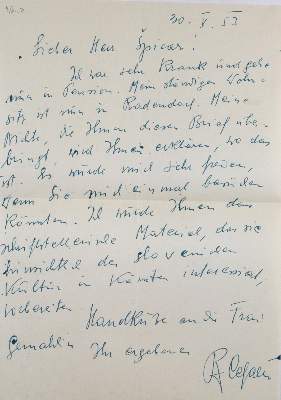 30. X. 53
Lieber Herr Špicar!
Ich war sehr krank und gehe
nun in Pension. Mein ständiger Wohn-
sitz ist nun in Radendorf. Meine
Nichte, die Ihnen diesen Brief über-
bringt, wird Ihnen erklären, wo das
ist. Es würde mich sehr freuen,
wenn Sie mich einmal besuchen
könnten. Ich würde Ihnen das
schriftstellerische Material, das sie
der slovenischen
Kultur in Kärnten interessiert,
vorbereiten
Handküsse an die Frau
Gemahlin Ihr ergebener